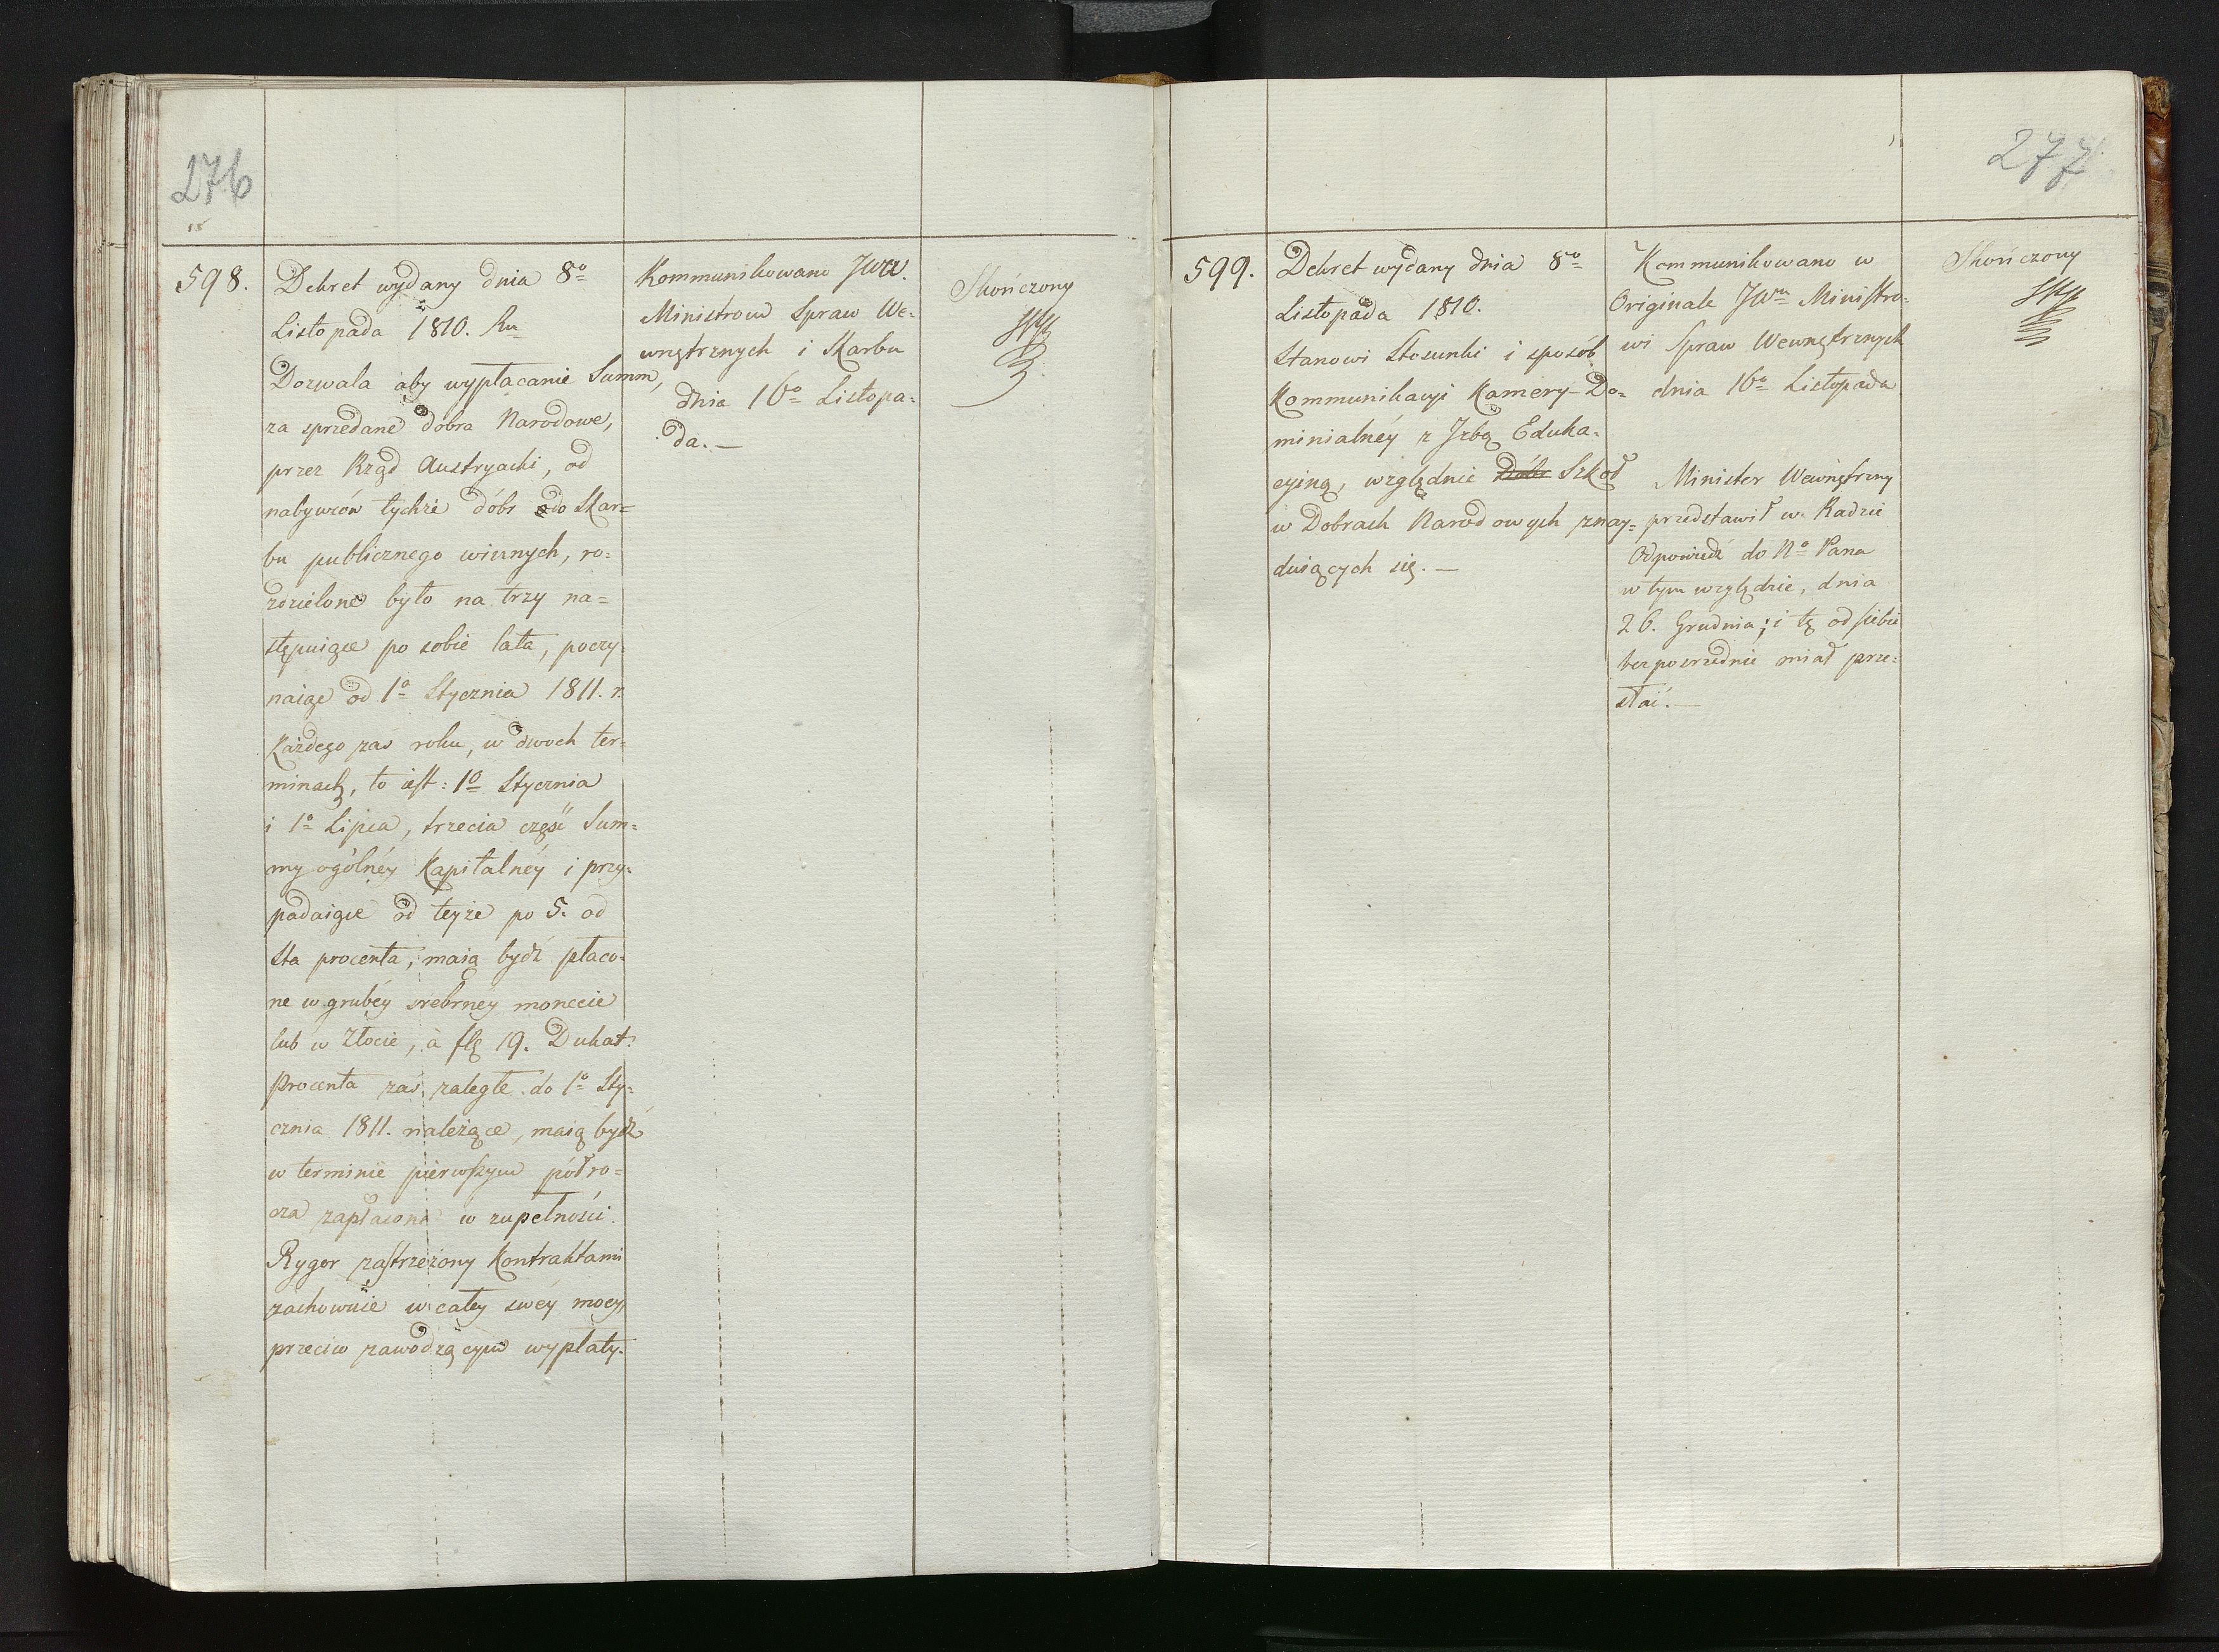 276
598.
Dekret wydany dnia 8º
Listopada 1810. Ru
Dozwala aby wypłacanie Summ,
za sprzedane dobra Narodowe,
przez Rząd Austryacki, od
nabywców tychże dóbr do Skar=
bu publicznego winnych, ro=
zdzielone było na trzy na=
stępuiące po sobie lata, poczy=
naiąc od 1º Stycznia 1811. r.
Każdego zaś roku, w dwoch ter=
minach, to iest: 1º Stycznia
i 1º Lipca, trzecia część Sum=
my ogólnéy Kapitalnéy i przy=
padaiące od teyże po 5. od
Sta procenta, maią bydź płaco=
ne w grubéy srebrnéy monecie
lub w złocie, à flę 19. Dukat.
Procenta zaś zaległe do 1º Sty=
cznia 1811. należące, maią bydź
w terminie pierwszym półro=
cza zapłacone w zupełności.
Rygor zastrzeżony Kontraktami
zachowuie w całey swéy mocy,
przeciw zawodzącym wypłaty.
Kommunikowano JWW.
Ministrom Spraw We=
wnętrznych i Skarbu
dnia 16º Listopa=
da. —
Skończony
277
599.
Dekret wydany dnia 8º
Listopada 1810.
Stanowi Stosunki i sposób
Kommunikacyi Kamery-Do=
minialnéy z Jzbą Eduka=
cyiną, względnie Dóbr Szkoł
w Dobrach Narodowych znay=
duiących się. —
Kommunikowano w
Originale JWmu Ministro=
wi Spraw Wewnętrznych
dnia 16º Listopada
Minister Wewnętrzny
przedstawił w Radzie
Odpowiedź do Nº Pana
w tym względzie, dnia
26. Grudnia; i tę od siebie
bezpośrednie miał prze=
słać. —
Skończony